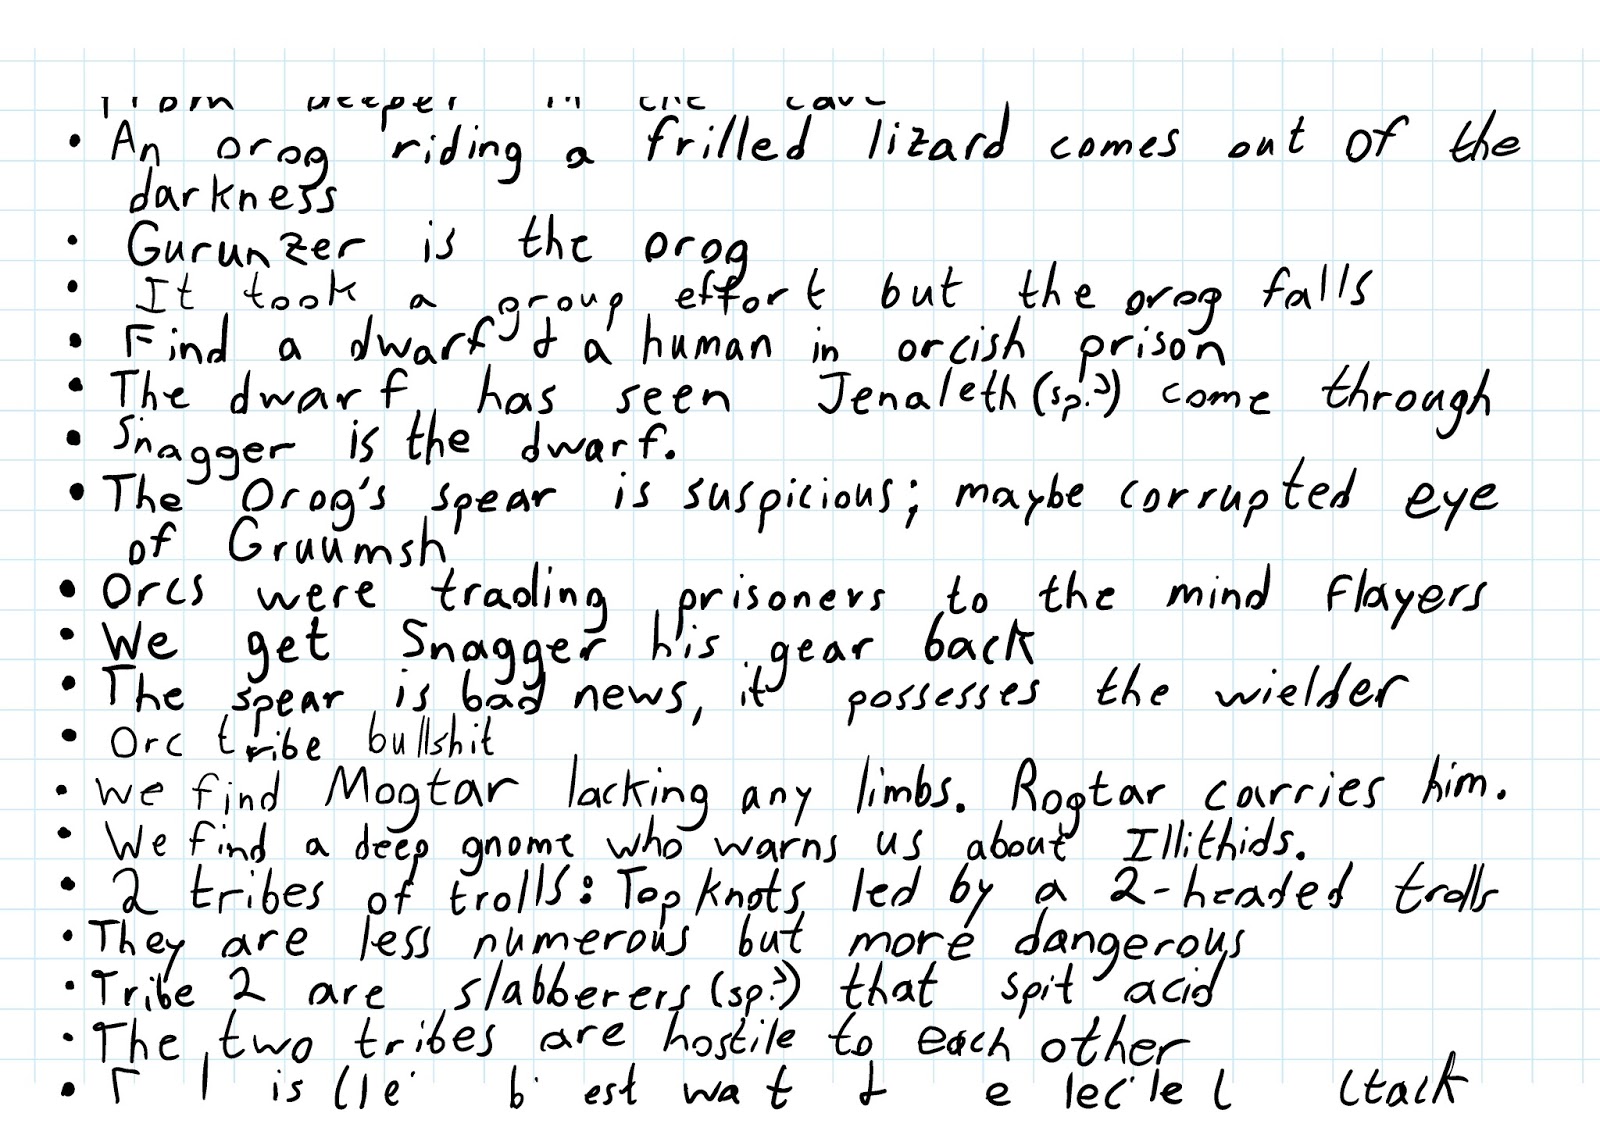 from deeper in the cave
• An orog riding a frilled lizard comes out of the
darkness
• Gurunzer is the orog
• It took a group effort but the orog falls
• Find a dwarf & a human in orcish prison
• The dwarf has seen Jenaleth (sp?) come through
• Snagger is the dwarf.
• The Orog's spear is suspicious; maybe corrupted eye
of Gruumsh
• Orcs were trading prisoners to the mind flayers
• We get Snagger his gear back
• The spear is bad news, it possesses the wielder
• Orc tribe bullshit
• We find Mogtar lacking any limbs. Rogtar carries him.
• We find a deep gnome who warns us about Illithids.
• 2 tribes of trolls: Topknots led by a 2-headed trolls
• They are less numerous but more dangerous
• Tribe 2 are slabberers (sp?) that spit acid
• The two tribes are hostile to each other
• is